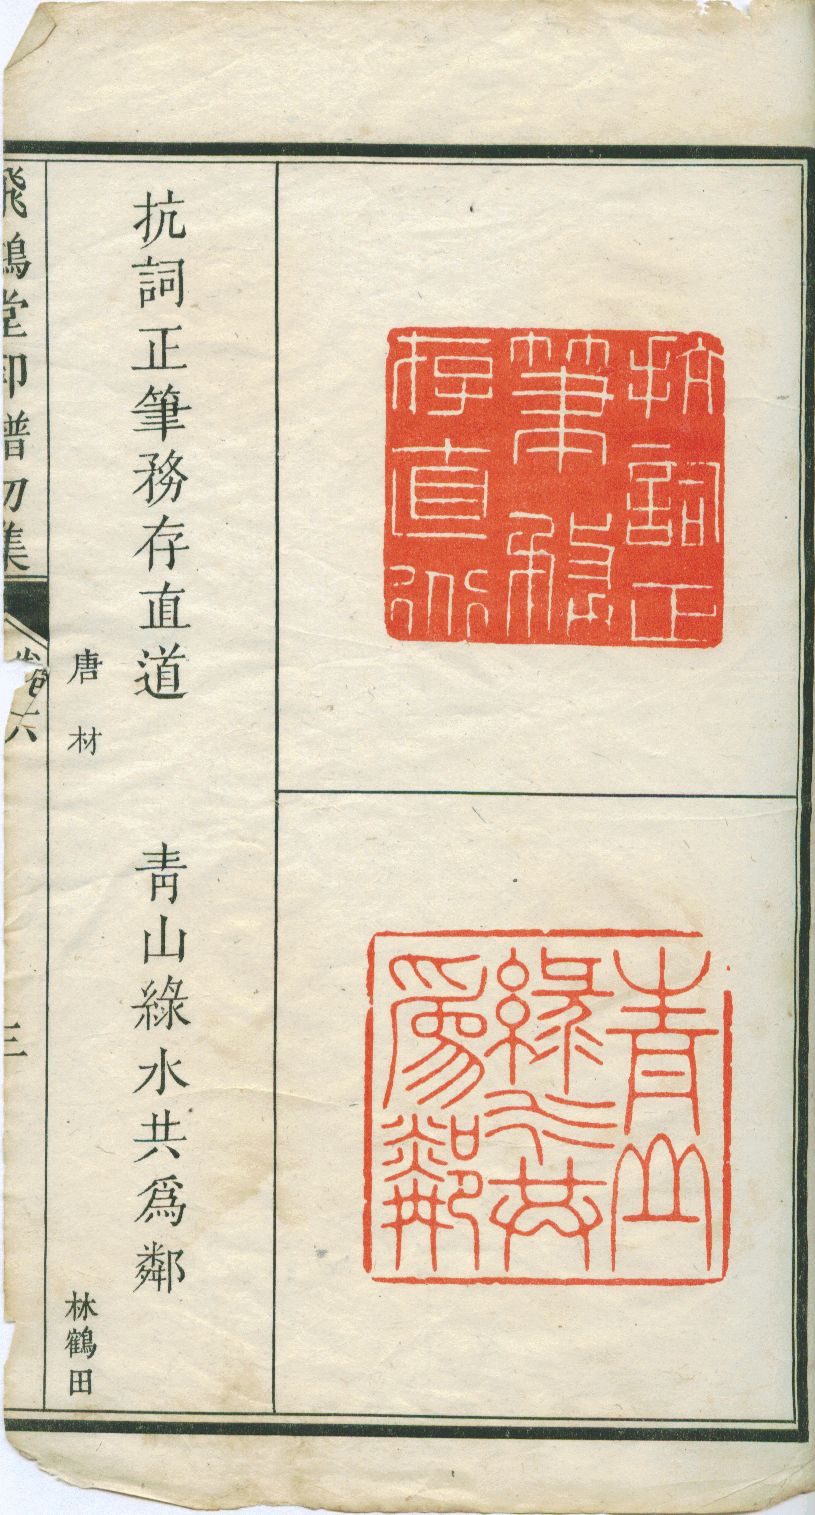 抗詞正
筆務
存直道
青山
綠水共
爲鄰
抗詞正筆務存直道
唐材
青山綠水共爲鄰
林鶴田
飛鴻堂印譜初集
卷六
三